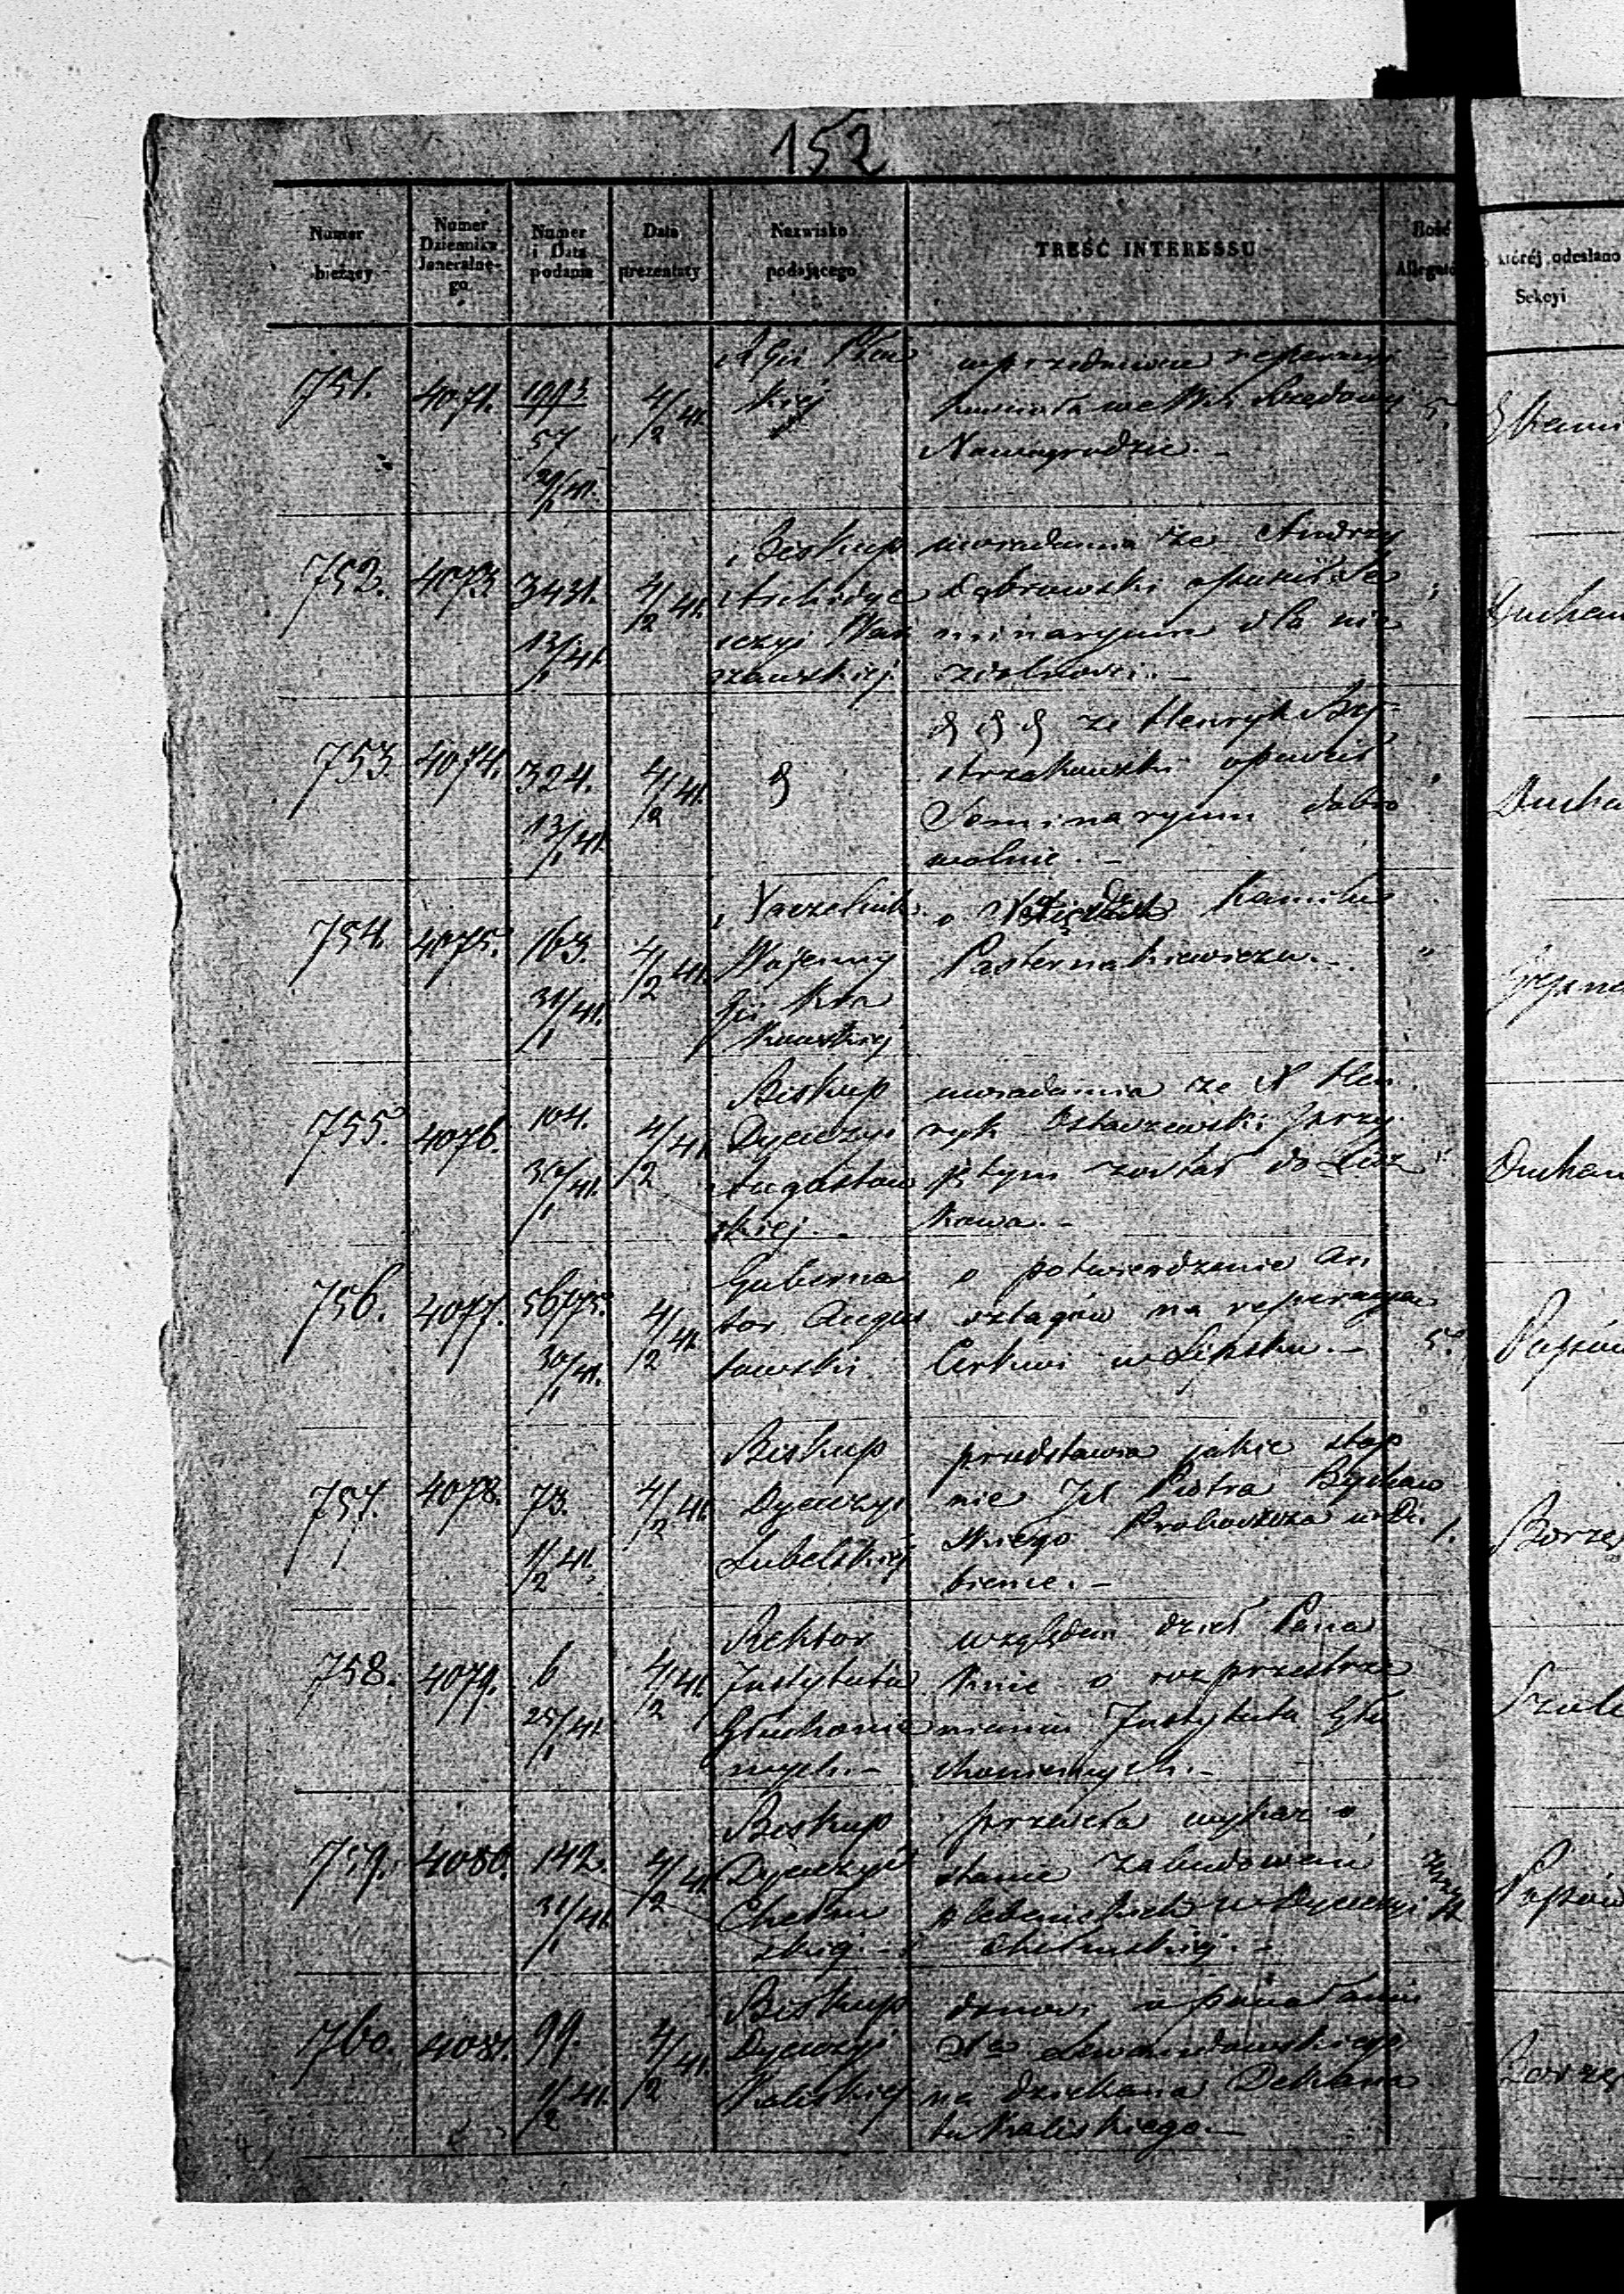 152
Numer bieżący
Numer Dziennika Jeneralne- go
Numer i Data podania
Data prezentaty
Nazwisko podającego
TREŚĆ INTERESSU
Ilość
któréj odesłano
Sekcyi
751. 4071. 1993/57 29/1 41. 4/2 41.
kościoła we Wsi
Nowogrodzie. -
5.
752. 4073 3431. 13/1 41. 4/2 41.
Biskup
Archidye
cezyi War
szawskiej
uwiadamia że Andrzy
Dąbrowski opuścił Se
minaryum dla nie
zdolności. -
Duchow
753. 4074. 324. 13/1 41. 4/2 41.
że Henryk
opuścił
Seminaryum dobro
wolnie. -
Ducho
754. 4075. 163. 31/1 41. 4/2 41.
Naczelnik
Wojenny
Gu Kra
kowskiej
o Kamilus
Pasternakiewiczu. -
"
755. 4076. 104. 30/1 41. 4/2 41.
Biskup
Dyecezyi
Augustow
skiej. -
uwiadamia że X Hen
ryk Ostaszewski przy
jętym został do Lisz
kowa. -
Duchow
756. 4077. 56775. 30/1 41. 4/2 41.
Guberna
tor Augus
towski
o potwierdzenie an
szlagów na reperacyą
Cerkwi w Lipsku. -
5.
757. 4078. 73. 1/2 41. 4/2 41.
Biskup
Dyecezyi
Lubelskiej
przedstawia jakie stop
nie JX Piotra Bychaw
skiego Proboszcza w Du
bience. -
1.
Borzę
758. 4079. 6 25/1 41. 4/2 41.
Rektor
Instytutu
Głuchonie
mych. -
względem dzieł Pana
Knie o rozprzestrze
nieniu Instytutu Głu
choniemych. -
759. 4080. 142. 31/1 41. 4/2 41.
Biskup
Dyecezyi
Chełm
skiej. -
przesyła wykaz o
stanie zabudowań
plebańskich w Dyecezyi
Chełmskiej. -
760. 4081. 99. 1/2 41. 4/2 41.
Biskup
Dyecezyi
Kaliskiej
donosi o powołaniu
Xa Lewandowskiego
na dziekana Dekana
tu Kaliskiego. -
Borzę